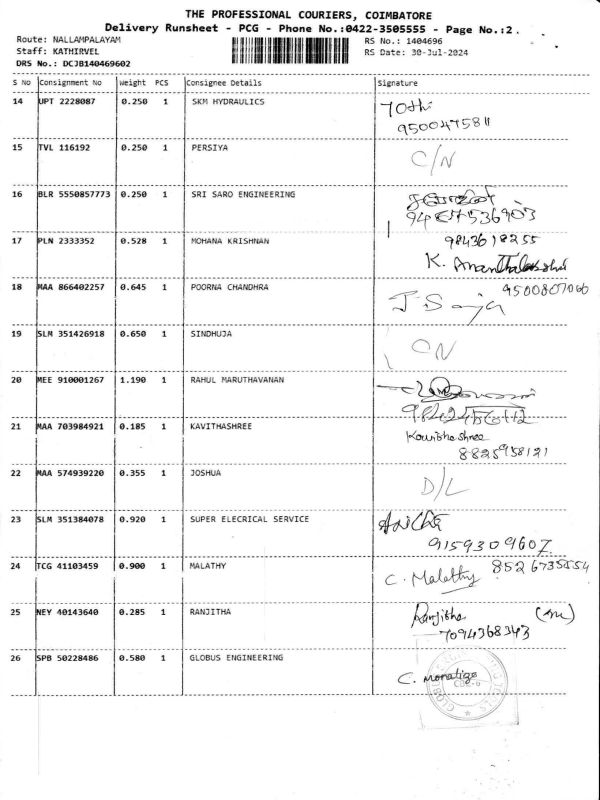 THE PROFESSIONAL COURIERS, COIMBATORE
Delivery Runsheet - PCG - Phone No.:0422-3505555 - Page No.:2.
Route: NALLAMPALAYAM RS No.: 1404696
Staff: KATHIRVEL RS Date: 30-Jul-2024
DRS No.: DCJB140469602
S No Consignment No Weight PCS Consignee Details Signature
14 UPT 2228087 0.250 1 SKM HYDRAULICS
9500475811
15 TVL 116192 0.250 1 PERSIYA C/N
16 BLR 5550857773 0.250 1 SRI SARO ENGINEERING
17 PLN 2333352 0.528 1 MOHANA KRISHNAN 9843618255
K.
18 MAA 866402257 0.645 1 POORNA CHANDHRA 9500807066
19 SLM 351426918 0.650 1 SINDHUJA CN
20 MEE 910001267 1.190 1 RAHUL MARUTHAVANAN
21 MAA 703984921 0.185 1 KAVITHASHREE
8825958121
22 MAA 574939220 0.355 1 JOSHUA D/L
23 SLM 351384078 0.920 1 SUPER ELECRICAL SERVICE
9159309607
24 TCG 41103459 0.900 1 MALATHY
C. Malathy
25 NEY 40143640 0.285 1 RANJITHA Ranjitha
7094368343
26 SPB 50228486 0.580 1 GLOBUS ENGINEERING
C.